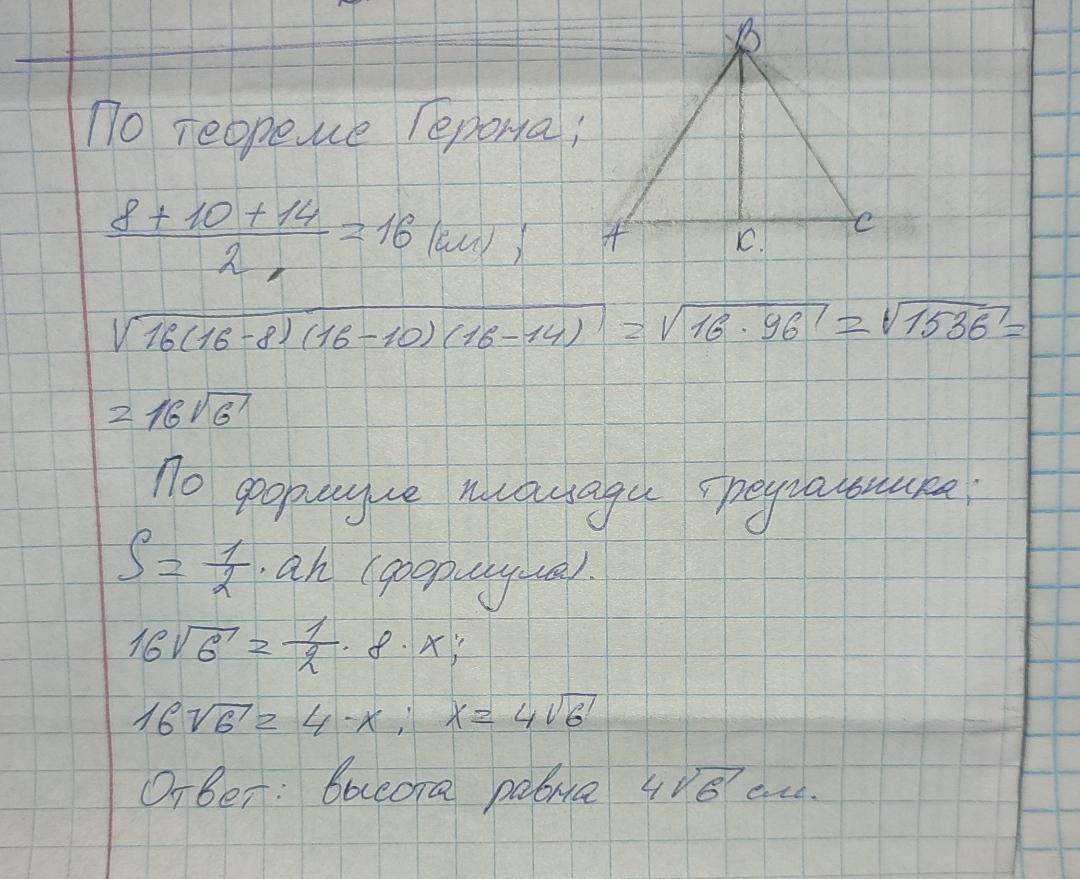 B
По теореме Герона;
A K. C
8 + 10 + 14 / 2 = 16 (см) ;
√16(16-8) (16-10) (16-14) = √16 · 96 = √1536 =
= 16√6
По формуле площади треугольника;
S = 1/2 · ah (формула).
16√6 = 1/2 · 8 · x ;
16√6 = 4 · x ; x = 4√6
Ответ: высота равна 4√6 см.